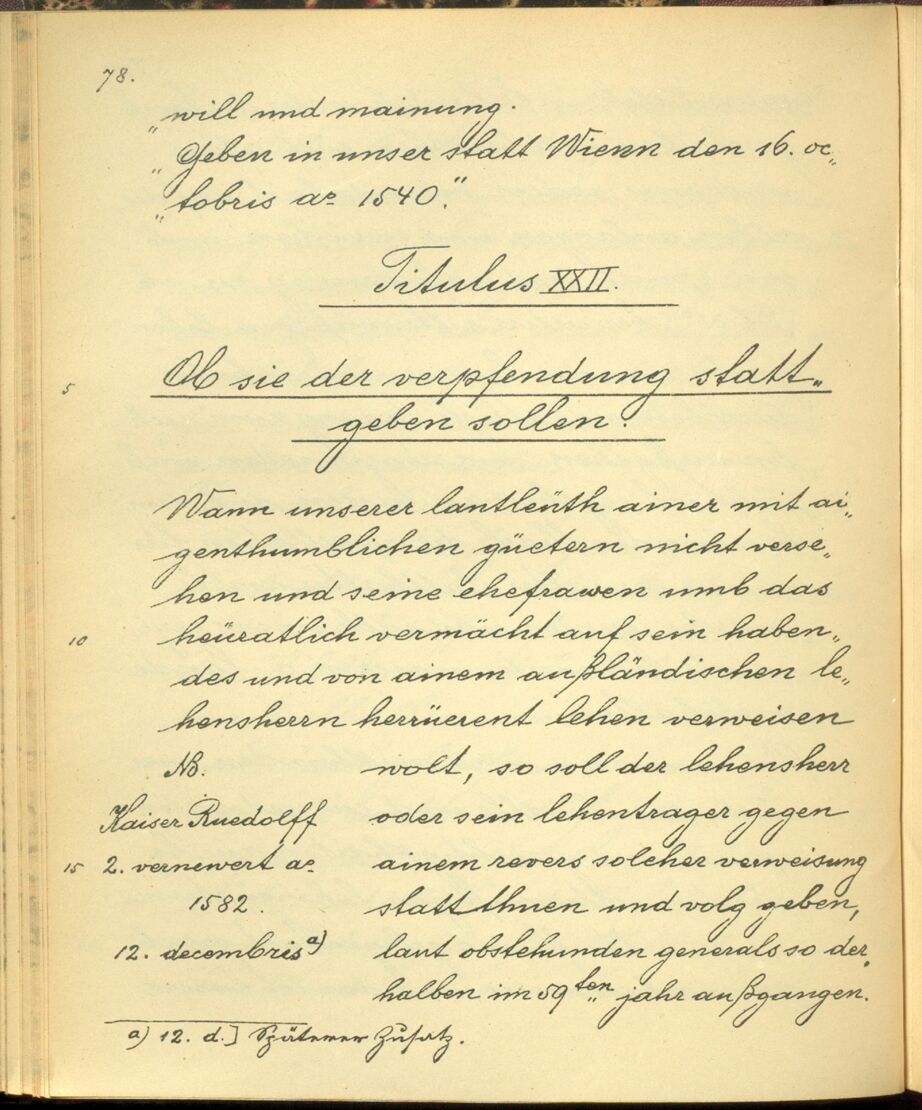 78.
„will und mainung.
„Geben in unser statt Wienn den 16. oc„
„tobris aº 1540."
Titulus XXII.
5 Ob sie der verpfendung statt„
geben sollen.
Wann unserer lantleüth ainer mit ai„
genthumblichen güetern nicht verse„
hen und seine ehefrawen umb das
10 heüratlich vermächt auf sein haben„
des und von ainem außländischen le„
hensherrn herrüerent lehen verweisen
NB. wolt, so soll der lehensherr
Kaiser Ruedolff oder sein lehentrager gegen
15 2. vernewert aº ainem revers solcher verweisung
1582. statt thuen und volg geben,
12. decembris a) laut obstehunden generals so der„
halben im 59ten jahr außgangen.
a) 12. d.] Späterer Zusatz.